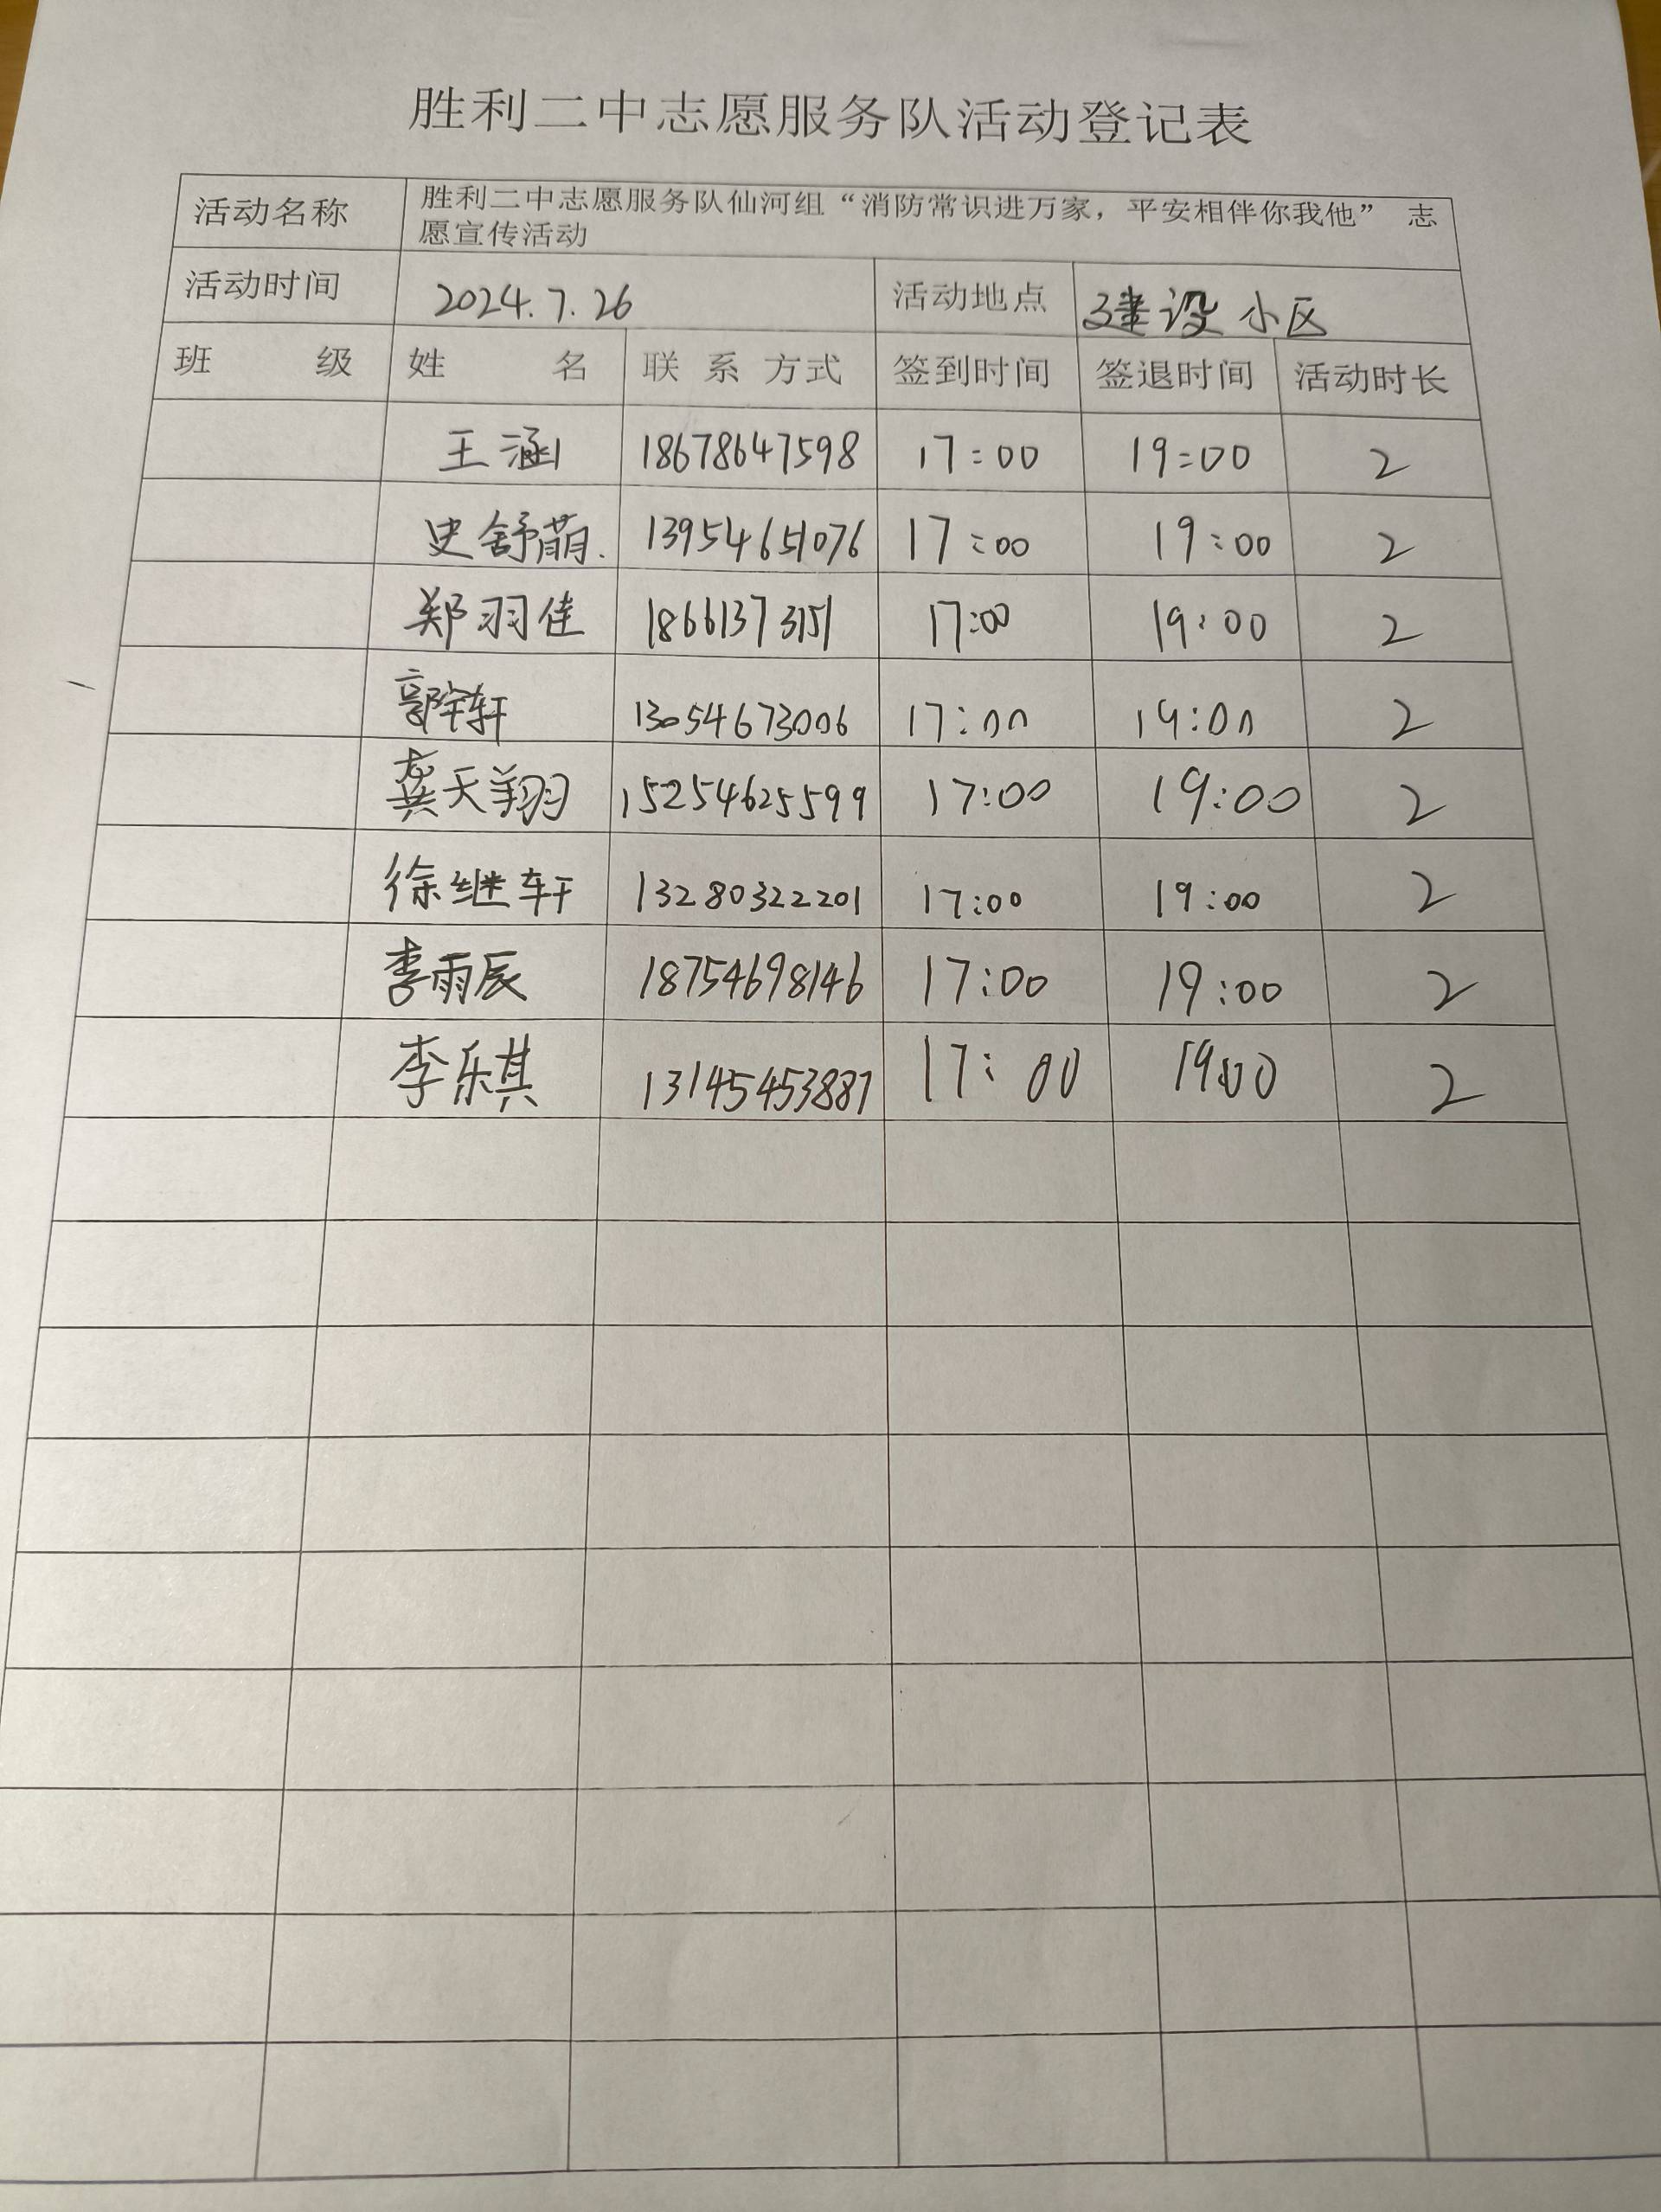 胜利二中志愿服务队活动登记表
活动名称 胜利二中志愿服务队仙河组“消防常识进万家，平安相伴你我他” 志
愿宣传活动
活动时间 2024.7.26 活动地点 建设小区
班 级 姓 名 联系方式 签到时间 签退时间 活动时长
王涵 18678647598 17:00 19:00 2
史舒萌. 13954651076 17:00 19:00 2
郑羽佳 18661373151 17:00 19:00 2
郭宇轩 13054673006 17:00 19:00 2
龚天翔 15254625599 17:00 19:00 2
徐继轩 13280322201 17:00 19:00 2
李雨辰 18754698146 17:00 19:00 2
李乐其 13145453887 17:00 19:00 2